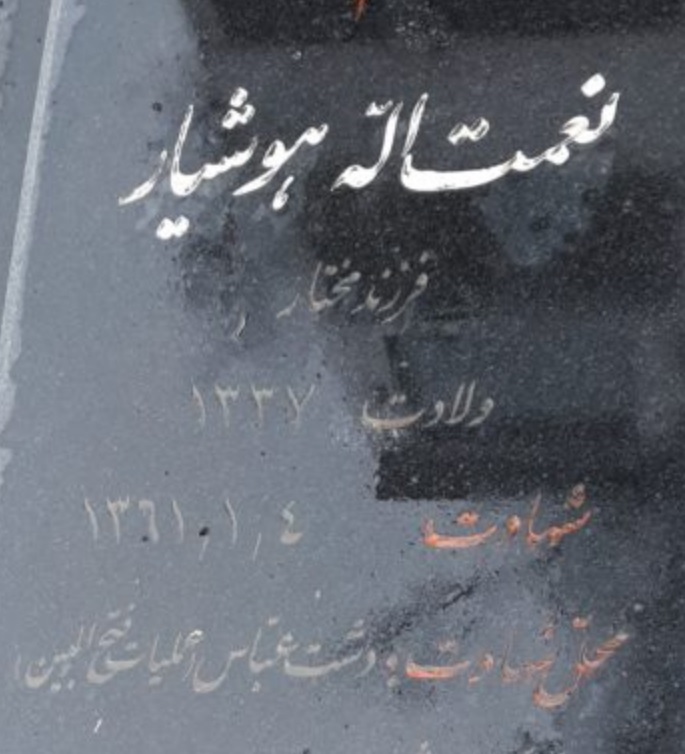 نعمت اله هوشیار
فرزند مختار
ولادت ۱۳۳۷
شهادت ۱۳٦۱٫۱٫٤
محل شهادت : دشت عباس (عملیات فتح المبین)